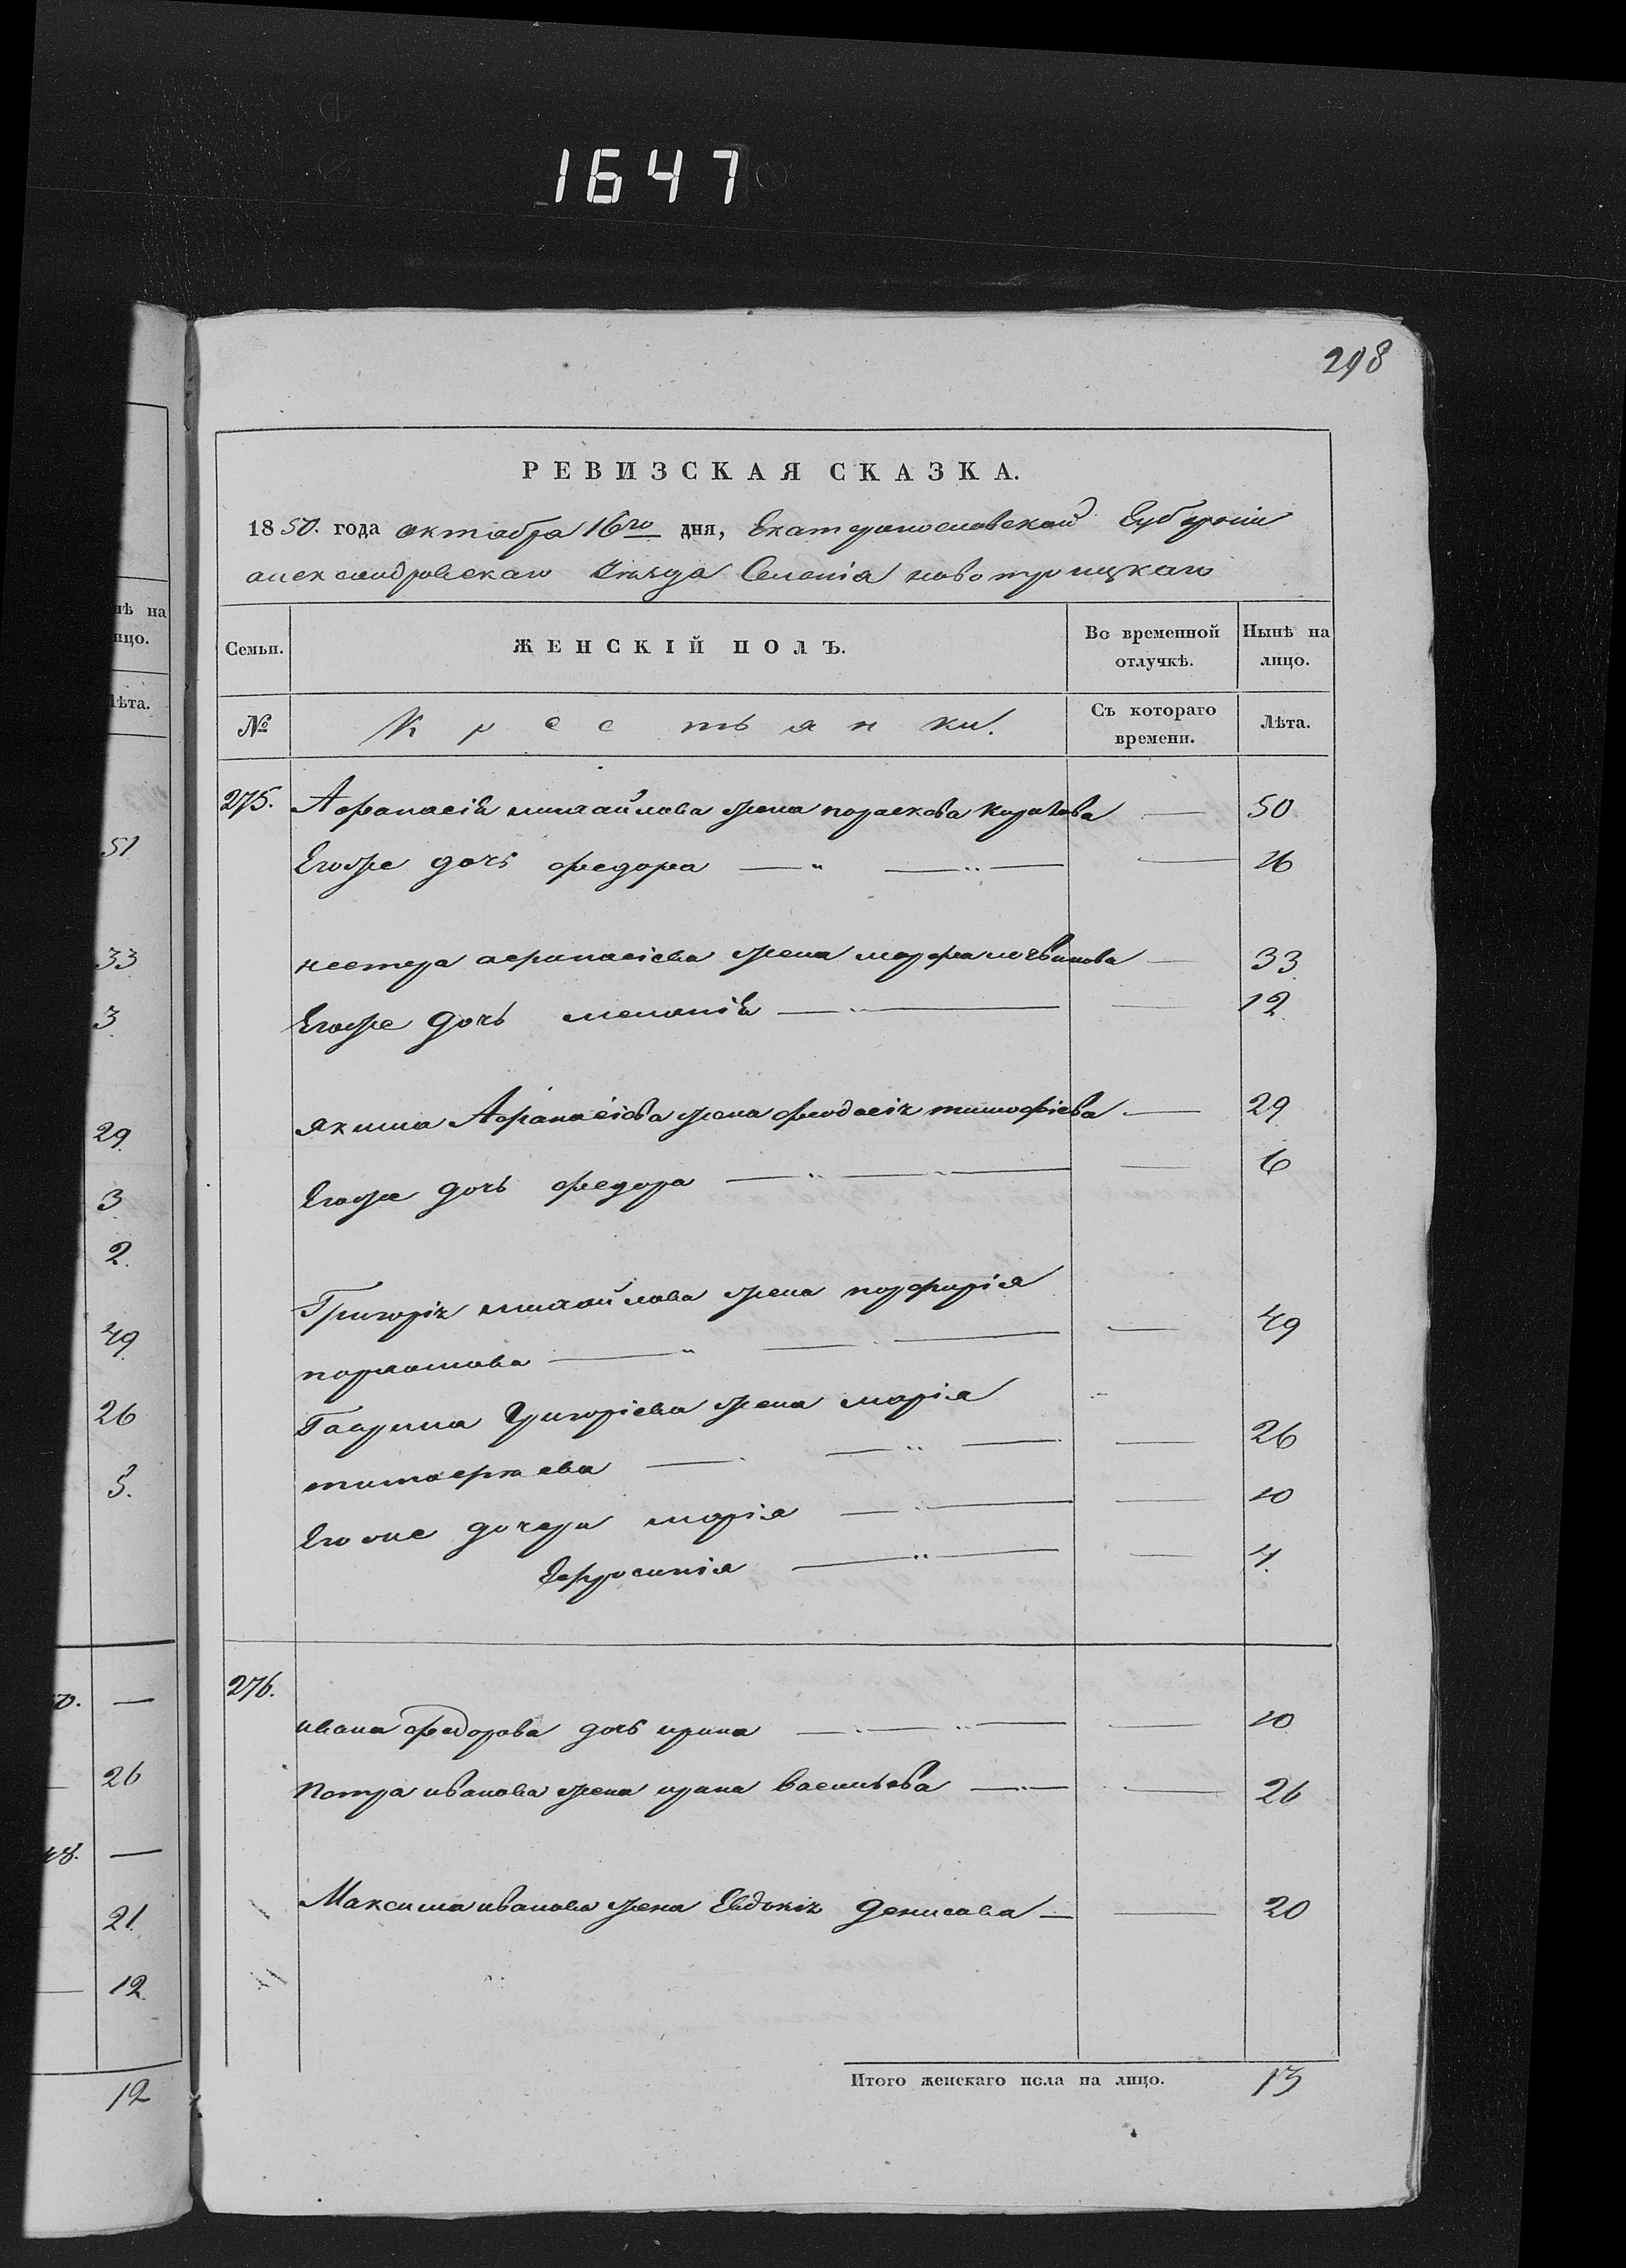 1647
298
РЕВИЗСКАЯ СКАЗКА.
1850. года октября 16го дня, Екатеринославской Губерніи
александровскаго Уѣзда Селенія новотроицкаго
Семьи.
ЖЕНСКІЙ ПОЛЪ.
Во временной отлучкѣ.
Нынѣ на лицо.
№
Крестьянки.
Съ котораго времени.
Лѣта.
275. Афанасія михайлова жена параскова — 50
Егоже дочь федора — 16
нестера афанасіева жена марфа — 33
Егоже дочь меланія — 12
якима Афанасіева жена феодосія тимофіева — 29
Егоже дочь федора — 6
Григорія михайлова жена порфирія
— 49
Гаврила Григоріева жена марія
тимофеева — 26
Егоже дочери марія — 10
Ефросинія — 4.
276.
ивана федорова дочь ирина — 10
петра иванова жена ирина васильева — 26
Максима иванова жена Евдокія денисова — 20
Итого женскаго пола на лицо. 13
нѣ на
ицо.
лѣта.
51
33
3
29
3
2.
49
26
3.
—
26
48. —
21
12
12